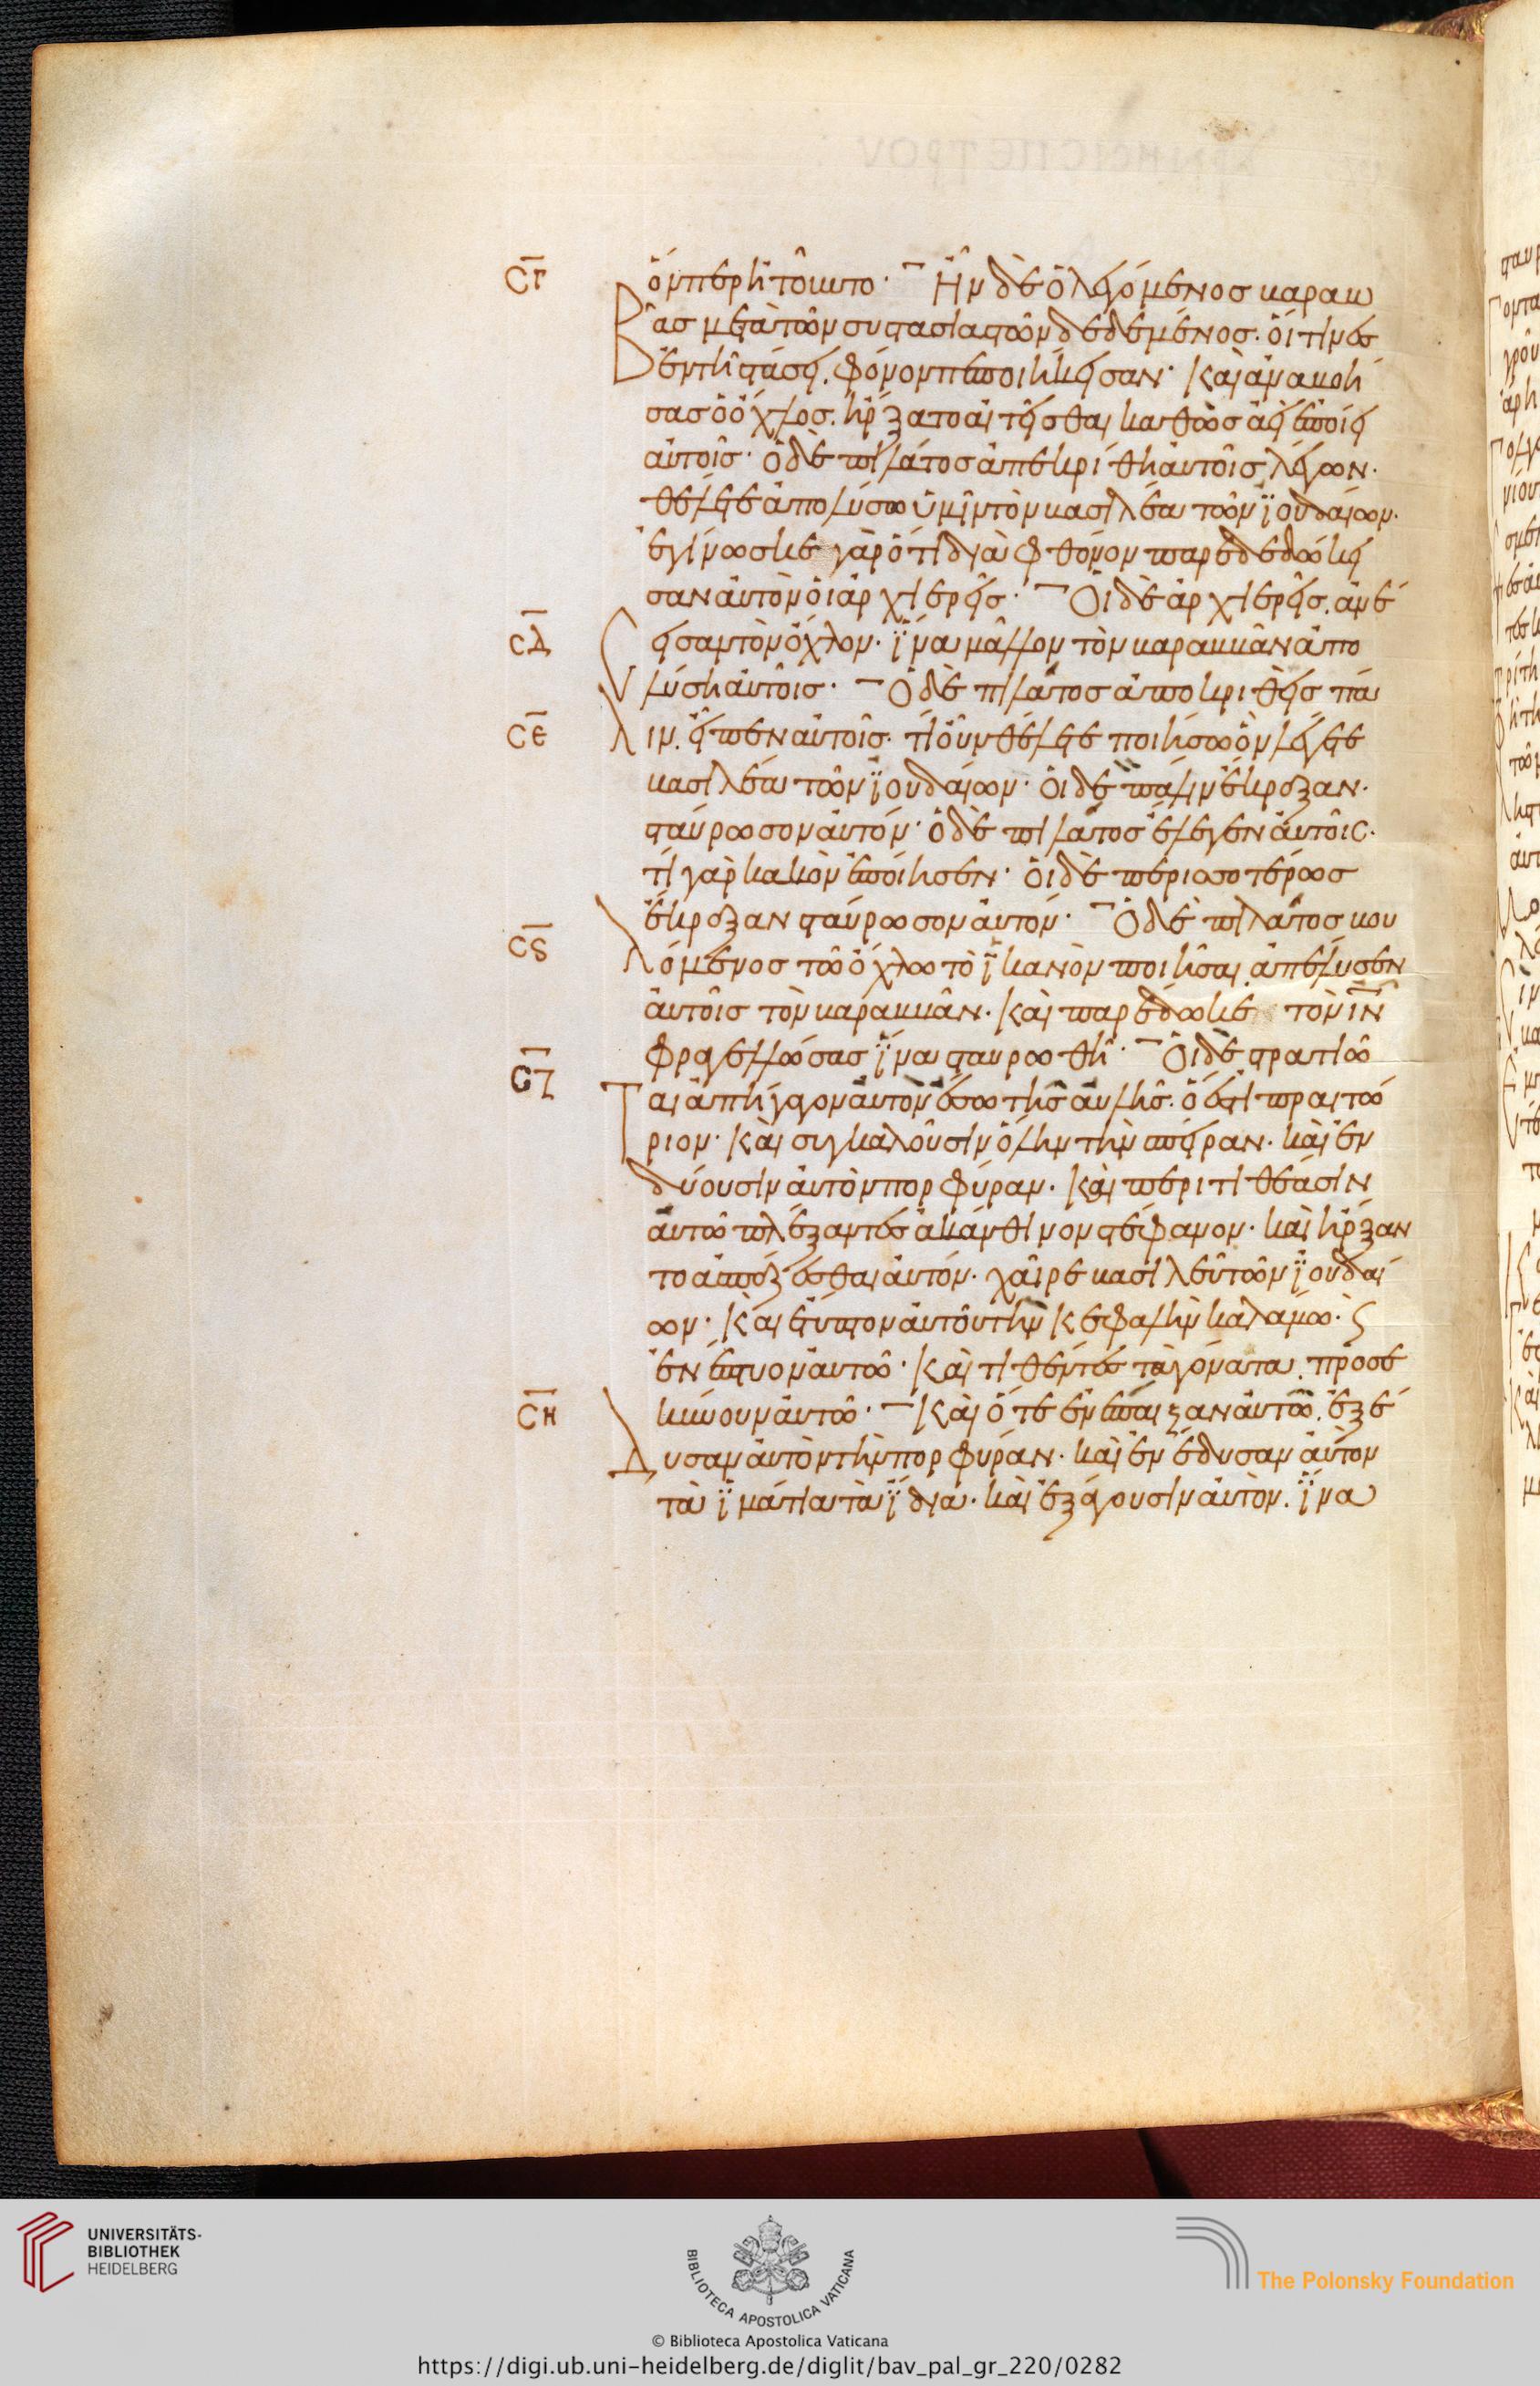 CΓ ὅνπερ ἠτοῦντο· Ἦν δὲ ὁ λεγόμενος βαραβ
Βᾶς μετὰ τῶν συστασιαστῶν δεδεμένος. οἵτινες
ἐν τῇ στάσει. φόνον πεποιήκεισαν· Καὶ ἀναβοή
σας ὁ ὄχλος. ἤρξατο αἰτεῖσθαι καθὼς ἀεὶ ἐποίει
αὐτοῖς· Ὁ δὲ πιλάτος ἀπεκρίθη αὐτοῖς λέγων.
θέλετε ἀπολύσω ὑμῖν τὸν βασιλέα τῶν ϊουδαίων.
ἐγίνωσκε γὰρ ὅτι διὰ φθόνον παρεδεδώκει
σαν αὐτὸν οἱ ἀρχιερεῖς· Οἱ δὲ ἀρχιερεῖς. ἀνέ
CΔ Cεισαν τὸν ὄχλον. ἵνα μᾶλλον τὸν βαραββᾶν ἀπο
λύσῃ αὐτοῖς· Ὁ δὲ πιλάτος ἀποκριθεὶς πά
CΕ λιν. εἶπεν αὐτοῖς. τί οὖν θέλετε ποιήσω ὃν λέγετε
βασιλέα τῶν ϊουδαίων· οἱ δὲ πάλιν ἔκραξαν.
σταύρωσον αὐτόν· ὁ δὲ πιλάτος ἔλεγεν αὐτοῖς.
τί γὰρ κακὸν ἐποίησεν· οἱ δὲ περισσοτέρως
ἔκραξαν σταύρωσον αὐτόν· Ὁ δὲ πιλάτος βου
Cϛ λόμενος τῶ ὄχλω τὸ ϊκανὸν ποιῆσαι. ἀπέλυσεν
αὐτοῖς τὸν βαραββᾶν. Καὶ παρέδωκε τὸν ιν
φραγελλώσας ἵνα σταυρωθῇ· Οἱ δὲ στρατιῶ
CΖ Ται ἀπήγαγον αὐτὸν ἔσω τῆς αὐλῆς. ὅ ἐστι πραιτώ
ριον· Καὶ συγκαλοῦσιν ὅλην τὴν σπεῖραν. καὶ ἐν
δύουσιν αὐτὸν πορφύραν. Καὶ περιτιθέασιν
αὐτῶ πλέξαντες ἀκάνθινον στέφανον. καὶ ἤρξαν
το ἀσπάζεσθαι αὐτόν. χαῖρε βασιλεῦ τῶν ϊουδαί
ων· Καὶ ἔτυπτον αὐτοῦ τὴν κεφαλὴν καλάμω. ϛ
ἐνέπτυον αὐτῶ· Καὶ τιθέντες τὰ γόνατα. προσε
CΗ κύνουν αὐτῶ· Καὶ ὅτε ἐνέπαιξαν αὐτῶ. ἐξέ
Δυσαν αὐτὸν τὴν πορφύραν. καὶ ἐνέδυσαν αὐτὸν
τὰ ϊμάτια τὰ ἴδια. καὶ ἐξάγουσιν αὐτὸν. ἵνα
UNIVERSITÄTS-
BIBLIOTHEK
HEIDELBERG
BIBLIOTECA APOSTOLICA VATICANA
The Polonsky Foundation
© Biblioteca Apostolica Vaticana
https://digi.ub.uni-heidelberg.de/diglit/bav_pal_gr_220/0282